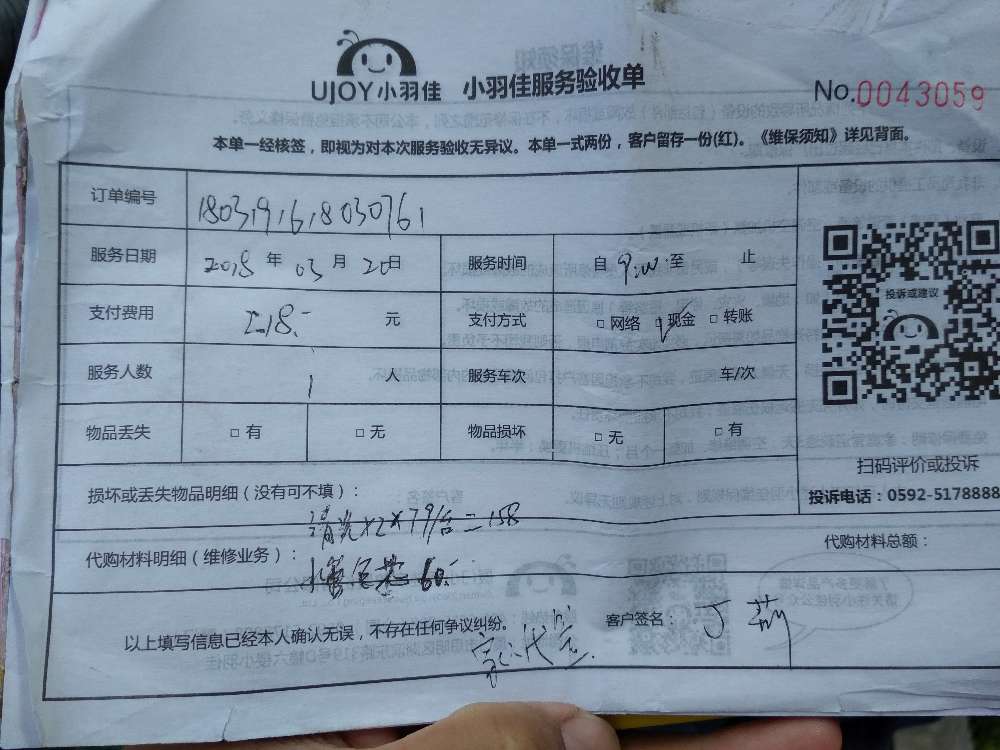 UJOY小羽佳 小羽佳服务验收单
No.0043059
本单一经核签，即视为对本次服务验收无异议。本单一式两份，客户留存一份(红)。《维保须知》详见背面。
订单编号 1803191618030761
服务日期 2018 年 03 月 20 日 服务时间 自 9:00 至 止
支付费用 218.- 元 支付方式 □网络 □现金 □转账
服务人数 1 人 服务车次 车/次
物品丢失 □有 □无 物品损坏 □无 □有
投诉或建议
扫码评价或投诉
投诉电话：0592-5178888
损坏或丢失物品明细（没有可不填）：
清洗×2×79/台=158
代购材料明细（维修业务）： 60.-
代购材料总额：
以上填写信息已经本人确认无误，不存在任何争议纠纷。 客户签名：丁莉